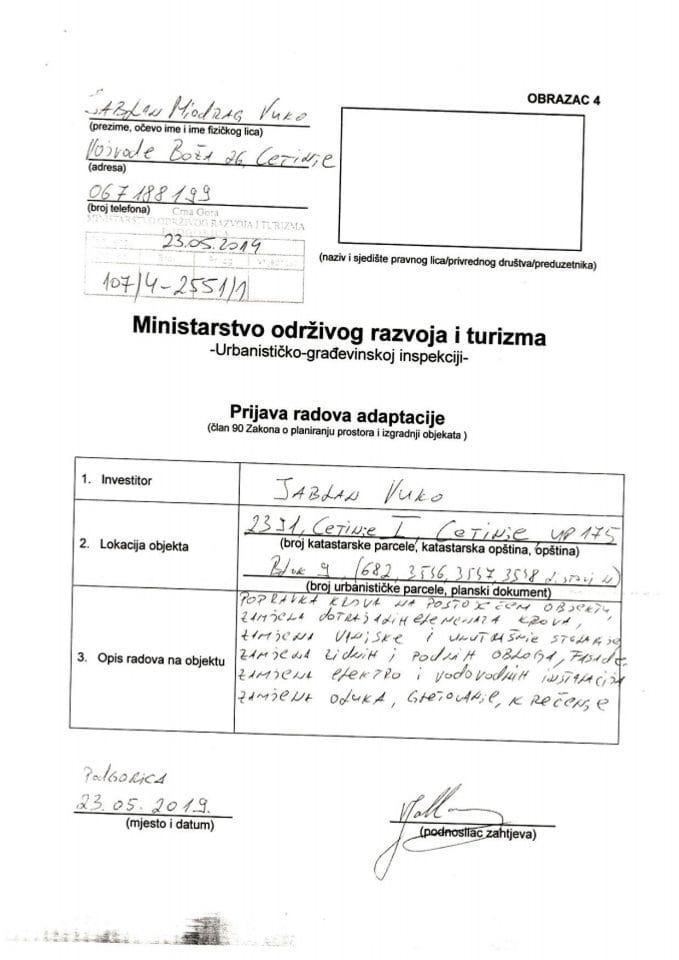 OBRAZAC 4
JABLAN MIODRAG VUKO
(prezime, očevo ime i ime fizičkog lica)
Vojvode Boža 26, Cetinje
(adresa)
067 188 199
(broj telefona)
Crna Gora
MINISTARSTVO ODRŽIVOG RAZVOJA I TURIZMA
23.05.2019
107/4-2551/1
(naziv i sjedište pravnog lica/privrednog društva/preduzetnika)
Ministarstvo održivog razvoja i turizma
-Urbanističko-građevinskoj inspekciji-
Prijava radova adaptacije
(član 90 Zakona o planiranju prostora i izgradnji objekata )
1. Investitor
JABLAN VUKO
2. Lokacija objekta
Cetinje I, Cetinje UP 175
(broj katastarske parcele, katastarska opština, opština)
Blok 9 (682, 3536, 3537, 3538
(broj urbanističke parcele, planski dokument)
3. Opis radova na objektu
POPRAVKA KROVA NA POSTOJEĆEM OBJEKTU,
ZAMJENA DOTRAJALIH ELEMENATA KROVA,
ZAMJENA VANJSKE I UNUTRAŠNJE STOLARIJE
ZAMJENA ZIDNIH I PODNIH OBLOGA, FASADE
ZAMJENA ELEKTRO I VODOVODNIH INSTALACIJA
ZAMJENA OLUKA, GLETOVANJE, KREČENJE
PODGORICA
23.05.2019.
(mjesto i datum)
(podnosilac zahtjeva)